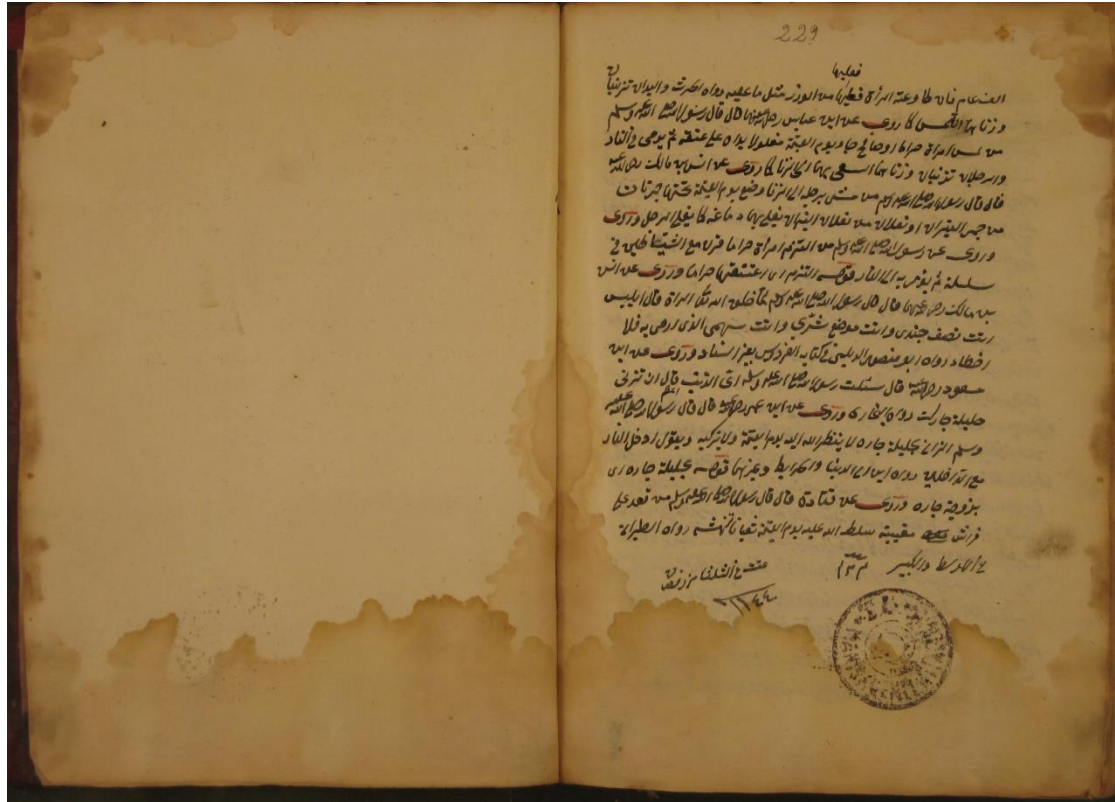 229
فعليها
الف عام فان طاوعته المرأة فعليها من الوزر مثل ما عليه رواه الحرث واليدان تزنيان
وزناهما اللمس كما روى عن ابن عباس رضي الله عنهما قال قال رسول الله صلى الله عليه وسلم
من لمس امرأة حراما جاء يوم القيمة مغلولا يداه على عنقه ثم يرمى في النار
والرجلان تزنيان وزناهما السعي بهما الى الزنا كما روى عن انس بن مالك رضي الله عنه
قال قال رسول الله صلى الله عليه وسلم من مشى برجله الى الزنا وضع يوم القيمة تحتها جمرتان
من جمر النيران او نعلان من نعلان النيران يغلى بهما دماغه كما يغلى المرجل وروى
وروى عن رسول الله صلى الله عليه وسلم من التزم امرأة حراما قرن مع الشيطان في
سلسلة ثم يؤمر به الى النار قوله التزم اى اعتنقها حراما وروى عن انس
بن مالك رضي عنهما قال قال رسول الله صلى الله عليه وسلم لما خلق الله تعالى المرأة قال ابليس
انت نصف جندى وانت موضع سرى وانت سهمى الذى ارمى به فلا
اخطاء رواه ابو منصور الديلمى في كتاب الفردوس بغير اسناد وروى عن ابن
مسعود رضي الله عنه قال سئلت رسول الله صلى الله عليه وسلم اى الذنب اعظم قال ان تزنى
حليلة جارك رواه البخارى وروى عن ابن عمر رضي الله عنه قال قال رسول الله صلى الله عليه
وسلم الزانى بحليلة جاره لا ينظر الله اليه يوم القيمة ولا يزكيه ويقول ادخل النار
مع الداخلين رواه ابن ابى الدنيا والخرايطى وغيرهما قوله بحليلة جاره اى
بزوجة جاره وروى عن قتادة قال قال رسول الله صلى الله عليه وسلم من قعد على
فراش مغيبة سلط الله عليه يوم القيمة ثعبانا تنهشه رواه الطبرانى
في الاوسط والكبير
١١٤٤